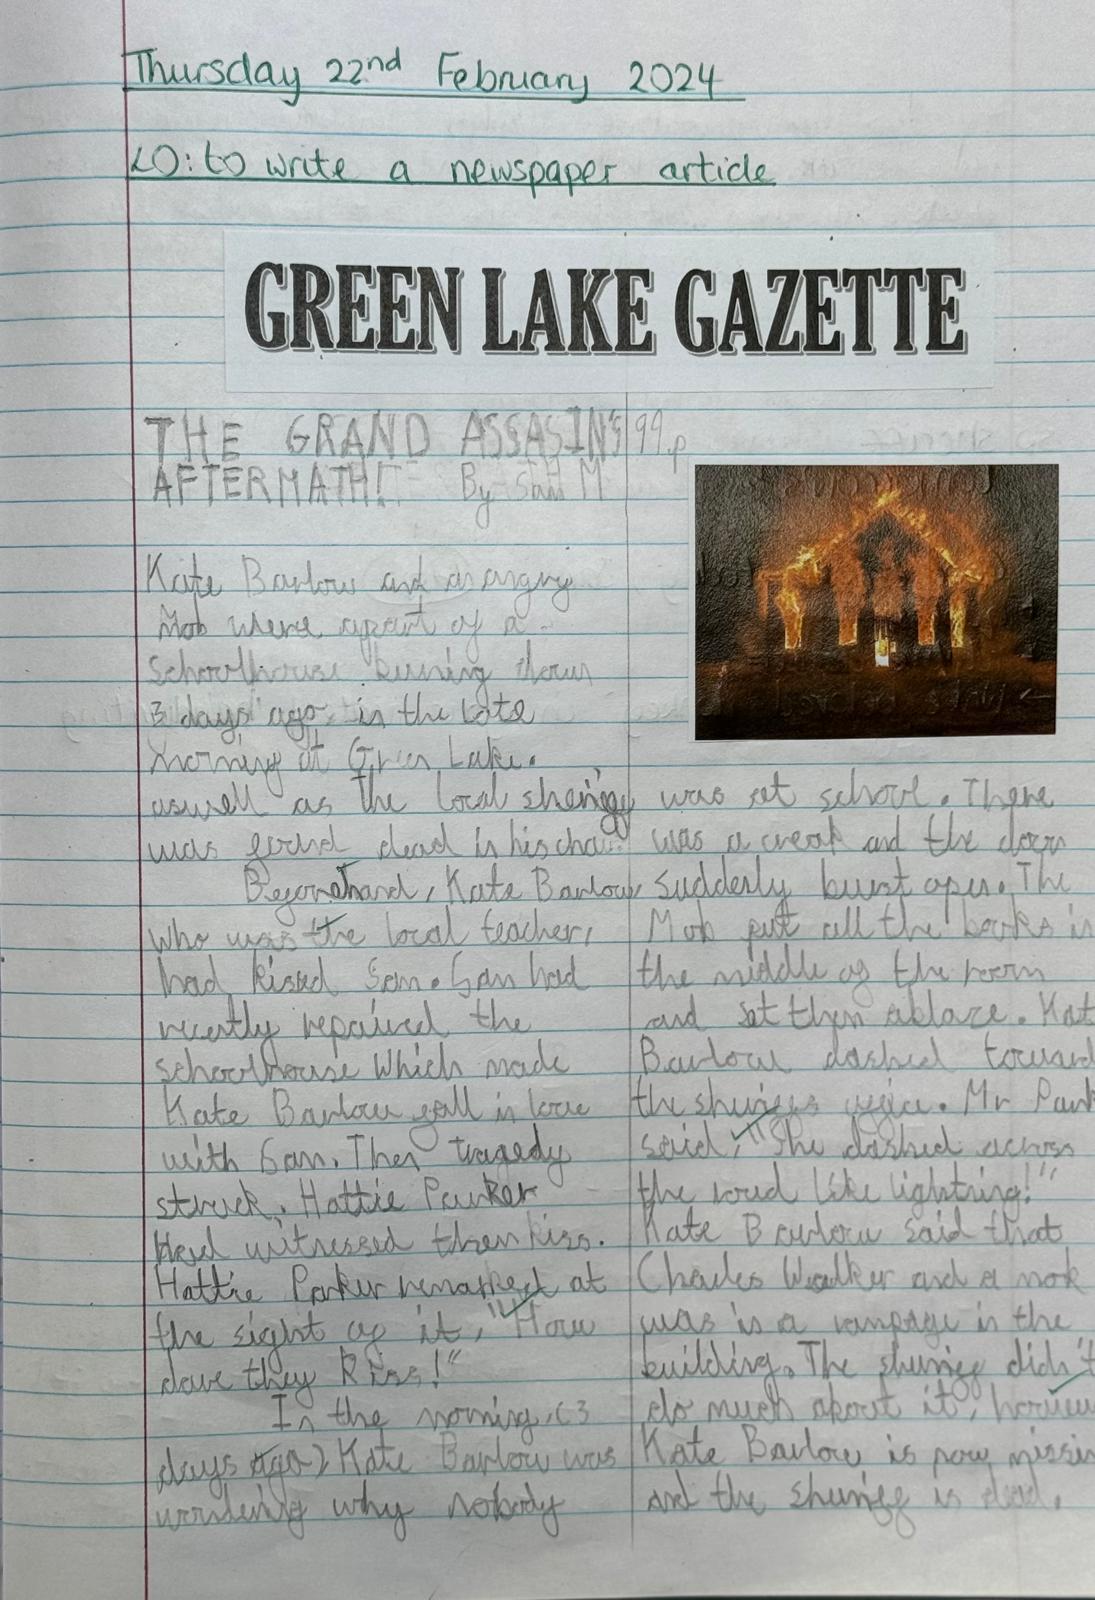 Thursday 22nd February 2024
LO: to write a newspaper article
GREEN LAKE GAZETTE
THE GRAND ASSASIN'S
AFTERMATH! By Sam M
99.p
Kate Barlow and a angry
Mob where apart of a
Schoolhouse burning down
3 days ago, in the late
morning at Green Lake.
aswell as the local sheriff
was found dead in his chair
Beforehand, Kate Barlow
who was the local teacher,
had kissed Sam. Sam had
recently repaired the
schoolhouse Which made
Kate Barlow fall in love
with Sam. Then tragedy
struck. Hattie Parker
Had witnessed them kiss.
Hattie Parker remarked at
the sight of it, "How
dare they Kiss!"
In the morning, (3
days ago) Kate Barlow was
wondering why nobody
was at school. There
was a creak and the door
suddenly burst open. The
Mob put all the books in
the middle of the room
and set them ablaze. Kat
Barlow dashed toward
the shuriffs office. Mr Park
said, "She dashed across
the road like lightning!"
Kate Barlow said that
Charles Walker and a mob
was in a rampage in the
building. The shuriff didn't
do much about it, howev
Kate Barlow is now missin
and the shuriff is dead.